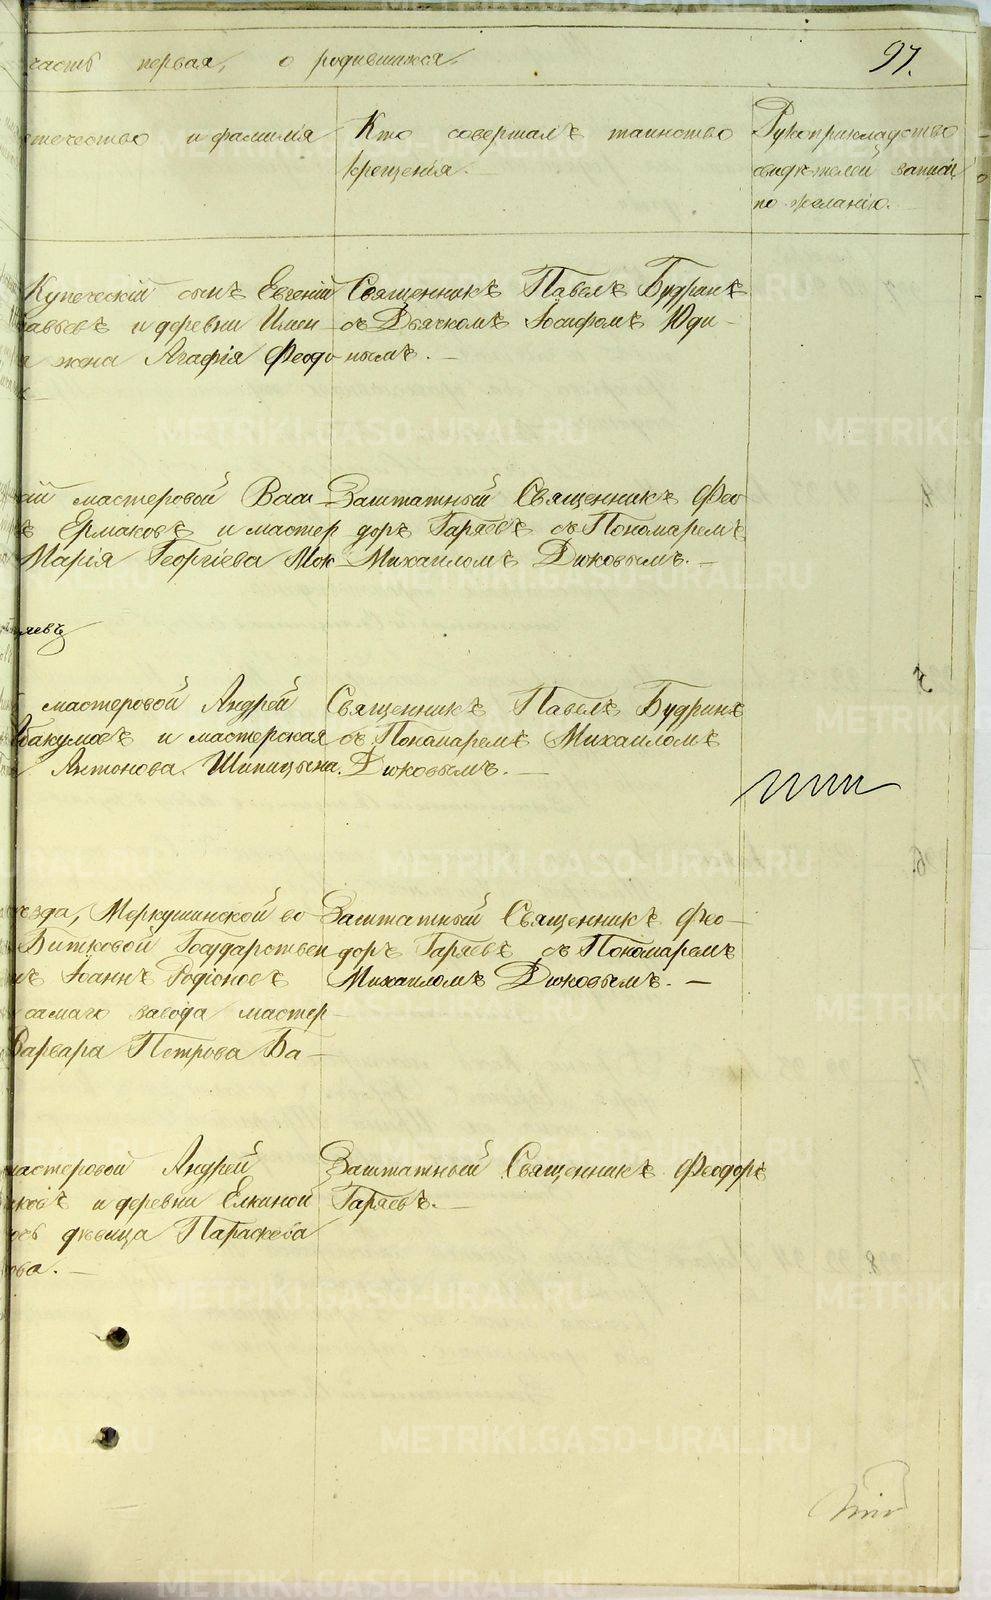 часть первая, о родившихся.
97.
отечество и фамилія
Кто совершалъ таинство
крещенія.
Рукоприкладство
свидѣтелей записи
по желанію.
Купеческій сынъ Евгеній
и деревни Имен
жена Агафія Феодо
Священникъ Павелъ Будринъ
съ Дьячкомъ Іосифомъ Юди-
нымъ. —
мастеровой Васи
Ермаковъ и мастер
Марія Георгіева Мок
Заштатный Священникъ Фео
доръ Гаряевъ съ Пономаремъ
Михаиломъ Дюковымъ. —
мастеровой Андрей
Абакумовъ и мастерская
Антонова Шипицына.
Священникъ Павелъ Будринъ
съ Пономаремъ Михаиломъ
Дюковымъ. —
уѣзда, Меркушинской во
Битковой Государствен
Іоаннъ Родіоновъ
самаго завода мастер
Варвара Петрова Ба-
Заштатный Священникъ Фео-
доръ Гаряевъ съ Пономаремъ
Михаиломъ Дюковымъ. —
мастеровой Андрей
и деревни Елкиной
дѣвица Параскева
ова. —
Заштатный Священникъ Феодоръ
Гаряевъ. —
METRIKI.GASO-URAL.RU